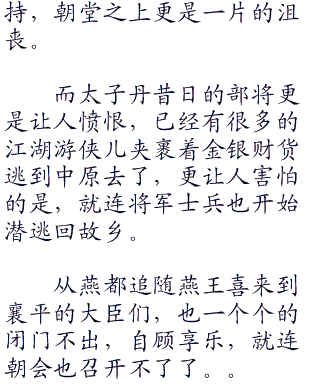 持，朝堂之上更是一片的沮
丧。
而太子丹昔日的部将更
是让人愤恨，已经有很多的
江湖游侠儿夹裹着金银财货
逃到中原去了，更让人害怕
的是，就连将军士兵也开始
潜逃回故乡。
从燕都追随燕王喜来到
襄平的大臣们，也一个个的
闭门不出，自顾享乐，就连
朝会也召开不了了。。